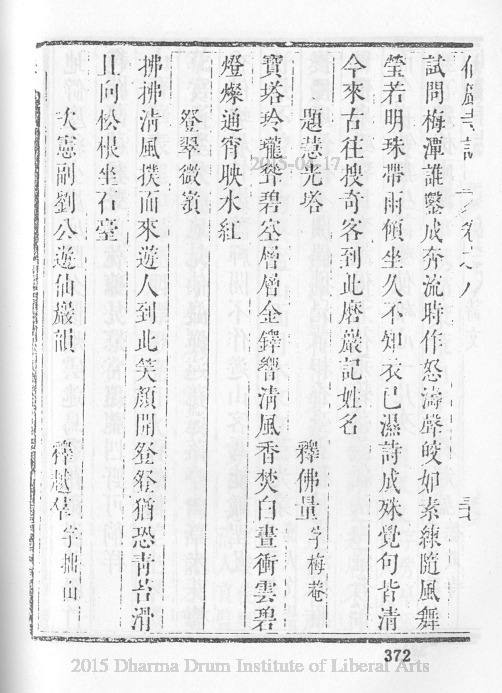 仙巖寺誌 卷之八
試問梅潭誰鑿成奔流時作怒濤聲皎如素練隨風舞
瑩若明珠帶雨傾坐久不知衣已濕詩成殊覺句皆清
今來古往搜奇客到此磨巖記姓名
題慧光塔 釋佛量 字梅菴
寶塔玲瓏聳碧空層層金鐸響清風香焚白晝衝雲碧
燈燦通宵映水紅
登翠微嶺
拂拂清風撲面來遊人到此笑顏開登登猶恐青苔滑
且向松根坐石臺
次憲副劉公遊仙巖韻 釋越 字拙山
372
2015-03-17
2015 Dharma Drum Institute of Liberal Arts